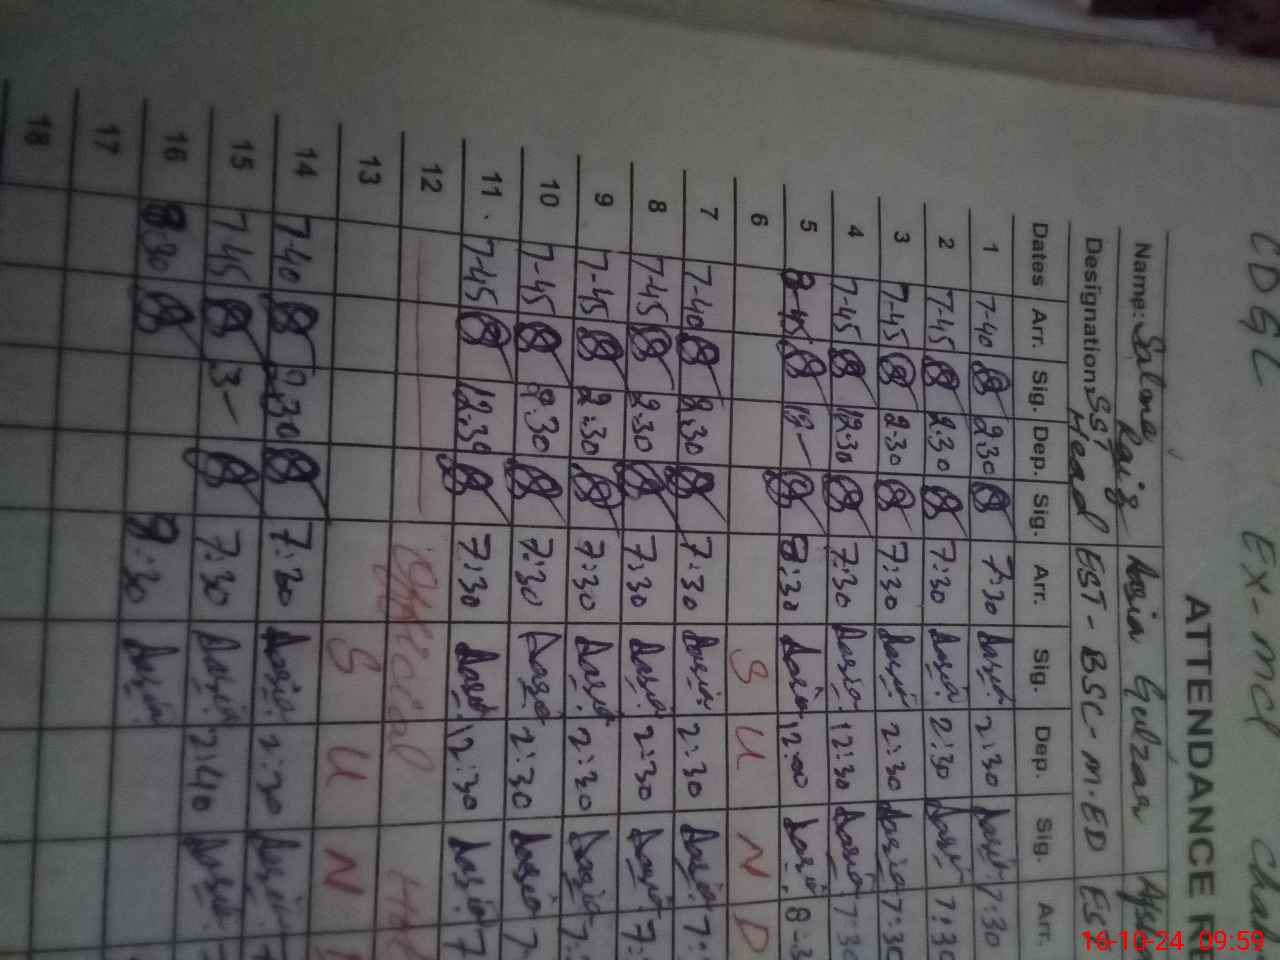 CDGL EX-MCL
ATTENDANCE RE
Name: Salma Asia Gulzar
Designation: SST Head EST - BSC - M.ED ES
Dates Arr. Sig. Dep. Sig. Arr. Sig. Dep. Sig. Arr.
1 7-40 2.30 7:30 Asia 2:30 Asia 7:30
2 7-45 2.30 7:30 Asia 2:30 Asia 7:30
3 7-45 2.30 7:30 Asia 2:30 Asia 7:30
4 7-45 12.30 7:30 Asia 12:30 Asia 7:30
5 8-45 12- 8:30 Asia 12:00 Asia 8-3
6 S U N D
7 7-40 2.30 7:30 Asia 2:30 Asia 7:
8 7-45 2.30 7:30 Asia 2:30 Asia 7:
9 7-45 2:30 7:30 Asia 2:30 Asia 7:
10 7-45 2.30 7:30 Asia 2:30 Asia 7
11 7-45 12.30 7:30 Asia 12:30 Asia 7
12 Official
13 S U N
14 7-40 2.30 7:30 Asia 2:30 Asia
15 7-45 3- 7:30 Asia 2:40 Asia
16 8.30 8:30 Asia
17
18
16-10-24 09:59